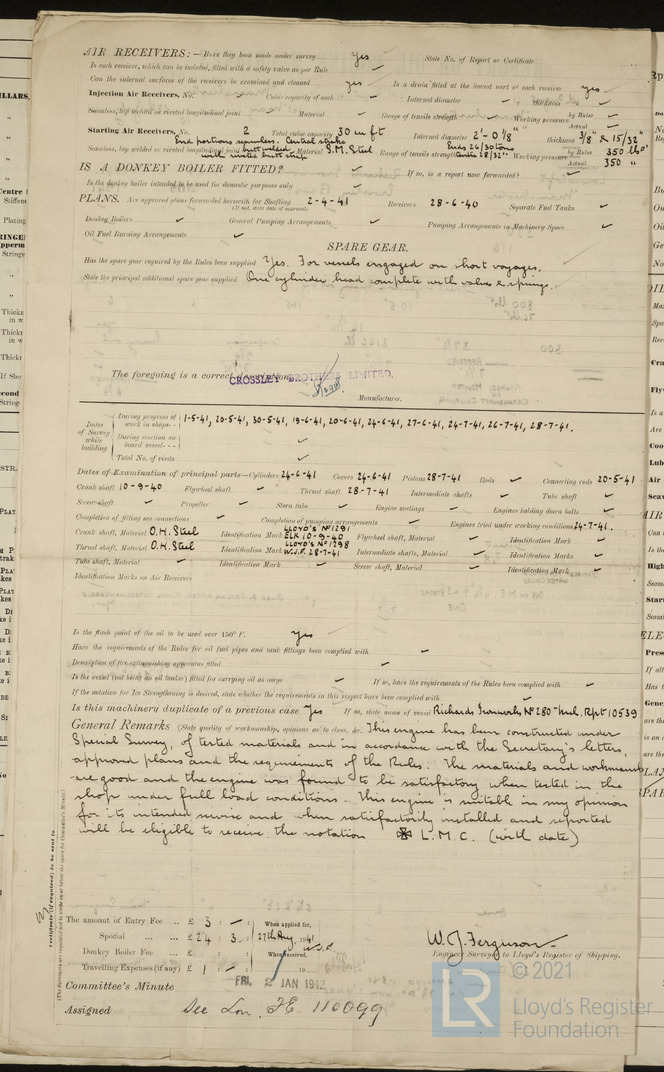 AIR RECEIVERS:— Have they been made under survey Yes State No. of Report or Certificate
Is each receiver, which can be isolated, fitted with a safety valve as per Rule
Can the internal surfaces of the receivers be examined and cleaned Yes Is a drain fitted at the lowest part of each receiver Yes
Injection Air Receivers, No. Cubic capacity of each Internal diameter thickness
Seamless, lap welded or riveted longitudinal joint Material Range of tensile strength Working pressure by Rules
Actual
Starting Air Receivers, No. 2 Total cubic capacity 30 cu ft Internal diameter 2'-0 1/8" thickness 3/8" & 15/32"
End portions seamless. Central strake
Seamless, lap welded or riveted longitudinal joint butt welded Material S.M. Steel Range of tensile strength Ends 26/30 tons Centre 28/32" Working pressure by Rules 350 lb"
with riveted butt strap Actual 350 "
IS A DONKEY BOILER FITTED? If so, is a report now forwarded?
Is the donkey boiler intended to be used for domestic purposes only
PLANS. Are approved plans forwarded herewith for Shafting 2-4-41 Receivers 28-6-40 Separate Fuel Tanks
(If not, state date of approval)
Donkey Boilers General Pumping Arrangements Pumping Arrangements in Machinery Space
Oil Fuel Burning Arrangements
SPARE GEAR.
Has the spare gear required by the Rules been supplied Yes. For vessels engaged on short voyages.
State the principal additional spare gear supplied One cylinder head complete with valves & springs.
The foregoing is a correct description,
CROSSLEY BROTHERS LIMITED.
Manufacturer.
Dates of Survey while building
During progress of work in shops-- 1-5-41, 20-5-41, 30-5-41, 19-6-41, 20-6-41, 24-6-41, 27-6-41, 24-7-41, 26-7-41, 28-7-41.
During erection on board vessel---
Total No. of visits
Dates of Examination of principal parts—Cylinders 24-6-41 Covers 24-6-41 Pistons 28-7-41 Rods Connecting rods 20-5-41
Crank shaft 10-9-40 Flywheel shaft Thrust shaft 28-7-41 Intermediate shafts Tube shaft
Screw shaft Propeller Stern tube Engine seatings Engines holding down bolts
Completion of fitting sea connections Completion of pumping arrangements Engines tried under working conditions 24-7-41.
Crank shaft, Material O.H. Steel Identification Mark LLOYD'S No 1291 ELK 10-9-40 Flywheel shaft, Material Identification Mark
Thrust shaft, Material O.H. Steel Identification Mark LLOYD'S No 1298 W.J.F. 28-7-41 Intermediate shafts, Material Identification Marks
Tube shaft, Material Identification Mark Screw shaft, Material Identification Mark
Identification Marks on Air Receivers
Is the flash point of the oil to be used over 150° F. Yes
Have the requirements of the Rules for oil fuel pipes and tank fittings been complied with
Description of fire extinguishing apparatus fitted
Is the vessel (not being an oil tanker) fitted for carrying oil as cargo If so, have the requirements of the Rules been complied with
If the notation for Ice Strengthening is desired, state whether the requirements in this respect have been complied with
Is this machinery duplicate of a previous case Yes If so, state name of vessel Richards Ironworks No 280 - Mch. Rpt 10539
General Remarks (State quality of workmanship, opinions as to class, &c. This engine has been constructed under
Special Survey, of tested materials and in accordance with the Secretary's letters,
approved plans and the requirements of the Rules. The materials and workmanship
are good and the engine was found to be satisfactory when tested in the
shop under full load conditions. This engine is suitable in my opinion
for its intended service and when satisfactorily installed and reported
will be eligible to receive the notation ✠ L.M.C. (with date)
The amount of Entry Fee .. £ 3 : – : When applied for,
Special ... £ 24 : 3 : 27th Aug. 1941
Donkey Boiler Fee ... £ : : When received,
Travelling Expenses (if any) £ 1 : – : 19
W.J. Ferguson
Engineer Surveyor to Lloyd's Register of Shipping.
Committee's Minute FRI. 2 JAN 1942
Assigned See Lon. F.E. 110099
© 2021
LR
Lloyd's Register
Foundation